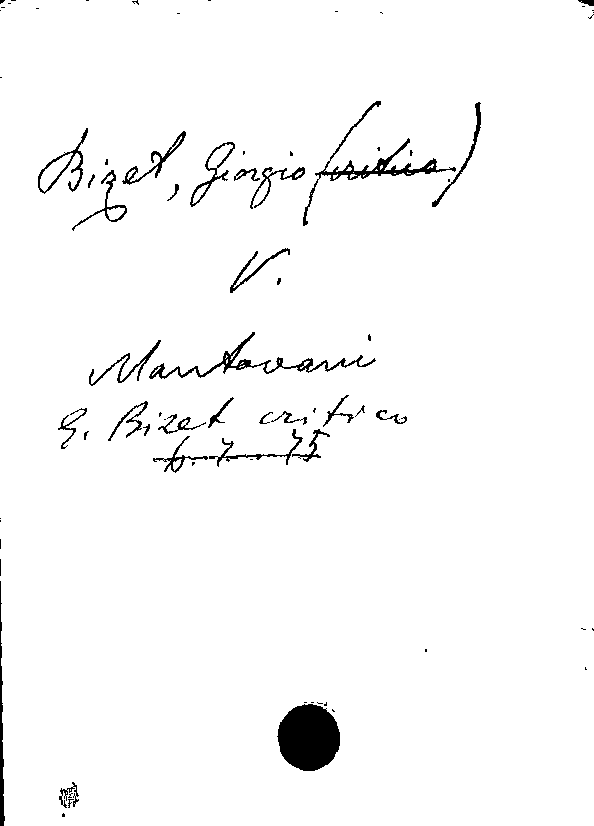 Bizet, Giorgio (critico)
V.
Mantovani
G. Bizet critico
6. 7. 75